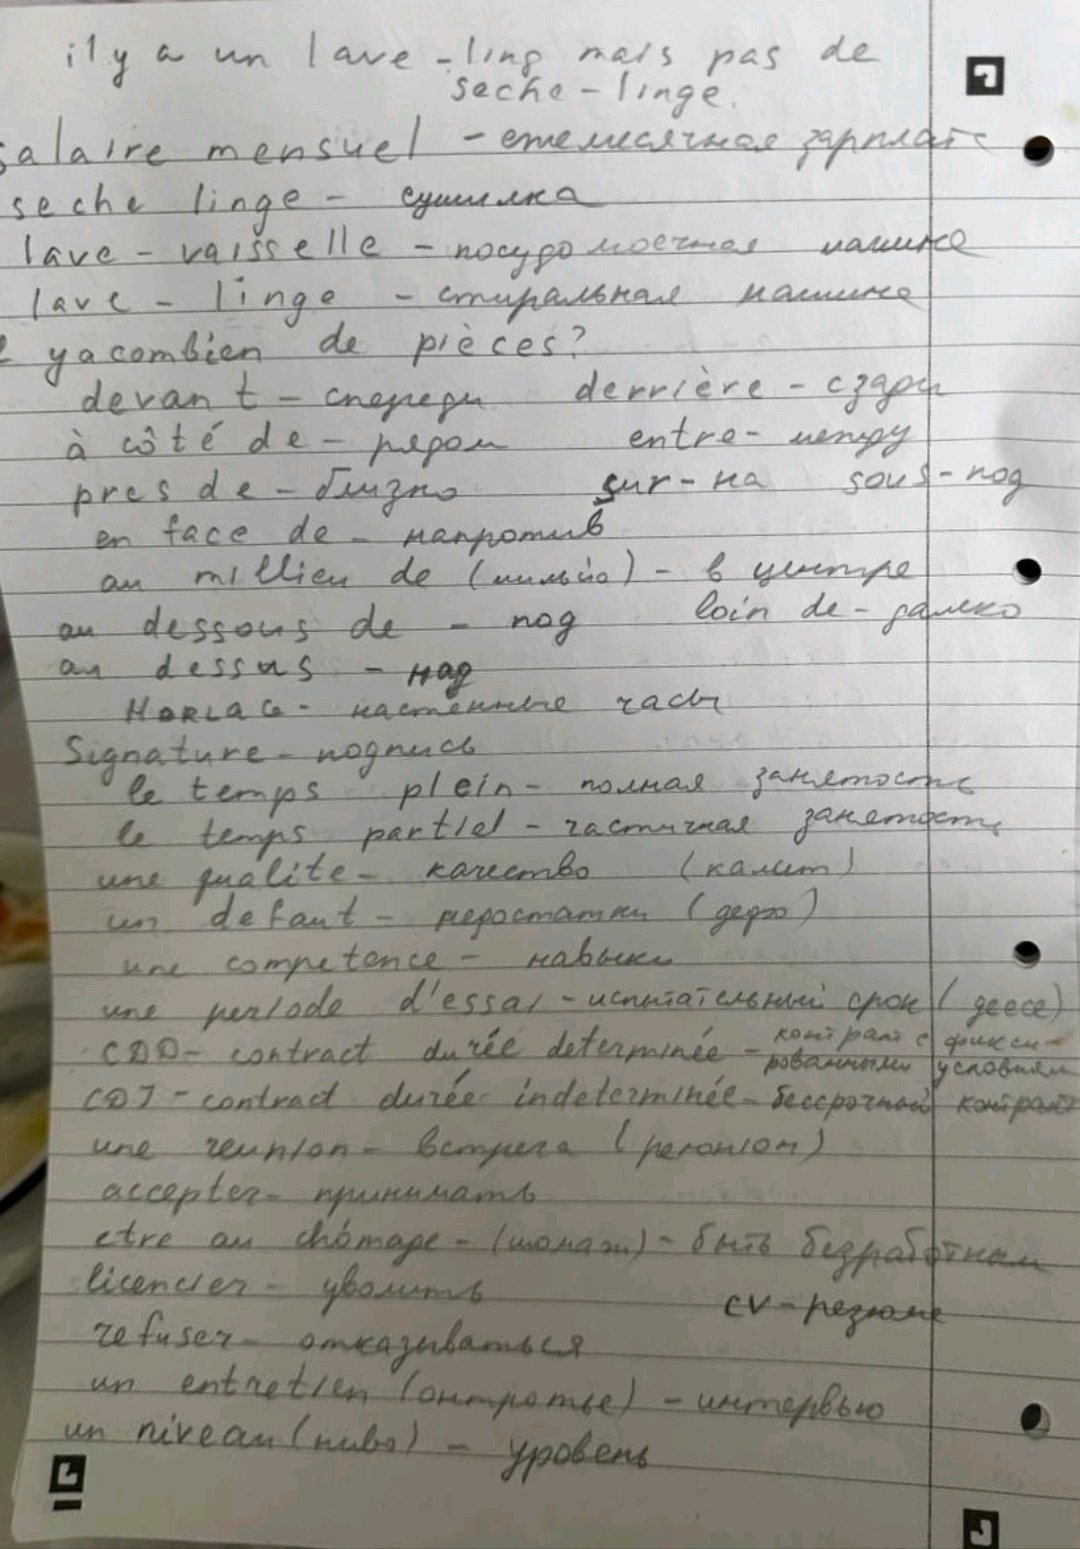 il y a un lave-ling mais pas de
seche-linge.
salaire mensuel - ежемесячная зарплата
seche linge - сушилка
lave-vaisselle - посудомоечная машина
lave-linge - стиральная машина
ya combien de pièces?
devant - спереди derrière - сзади
à côté de - рядом entre - между
pres de - близко sur - на sous - под
en face de - напротив
au millieu de (мильйо) - в центре
au dessous de - под loin de - далеко
au dessus - над
настенные часы
Signature - подпись
le temps plein - полная занятость
le temps partiel - частичная занятость
une qualite - качество (калит)
un defaut - недостатки (дефо)
une competence - навыки
une periode d'essai - испытательный срок (десе)
CDD - contract durée determinée - контракт с фикси-
рованными условиям
CDI - contract durée indeterminée - бессрочный контракт
une reunion - встреча (реюнион)
accepter - принимать
etre au chômage - (шомаж) - быть безработным
licencier - уволить
cv - резюме
refuser - отказываться
un entretien (онтротье) - интервью
un niveau (ниво) - уровень